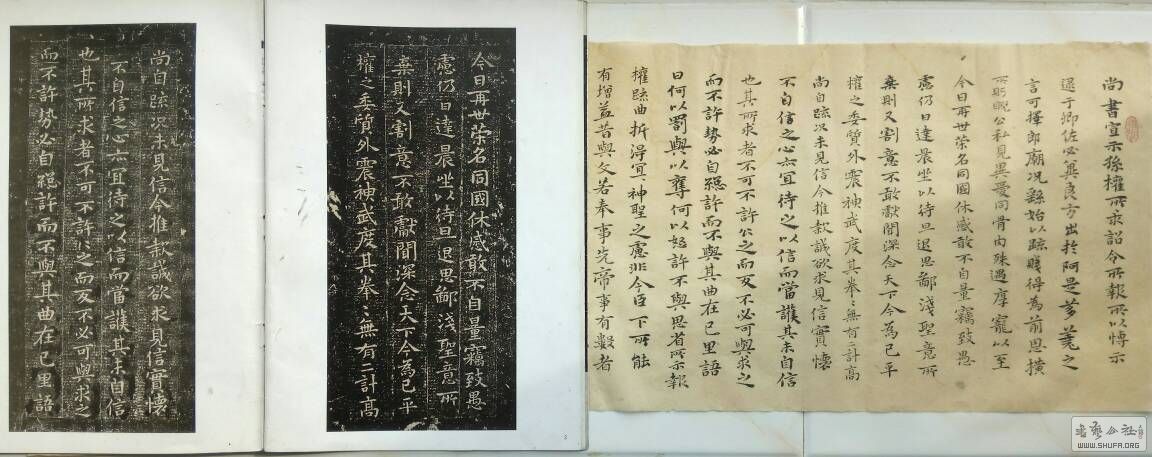 尚書宣示孫權所求詔令所報所以博示
逮于卿佐必冀良方出於阿是芻蕘之
言可擇郎廟况繇始以疏賤得為前恩橫
所盼睨公私見異愛同骨肉殊遇厚寵以至
今日再世榮名同國休慼敢不自量竊致愚
慮仍日達晨坐以待旦退思鄙淺聖意所
棄則又割意不敢獻聞深念天下今為已平
權之委質外震神武度其拳〻無有二計高
尚自疏况未見信今推款誠欲求見信實懷
不自信之心亦宜待之以信而當護其未自信
也其所求者不可不許〻之而反不必可與求之
而不許勢必自絕許而不與其曲在己里語
曰何以罰與以奪何以怒許不與思省所示報
權疏曲折得宜神聖之慮非今臣下所能
有增益昔與文若奉事先帝事有數者
今日再世榮名同國休慼敢不自量竊致愚
慮仍日達晨坐以待旦退思鄙淺聖意所
棄則又割意不敢獻聞深念天下今為已平
權之委質外震神武度其拳〻無有二計高
尚自疏况未見信今推款誠欲求見信實懷
不自信之心亦宜待之以信而當護其未自信
也其所求者不可不許〻之而反不必可與求之
而不許勢必自絕許而不與其曲在己里語
書藝公社
WWW.SHUFA.ORG